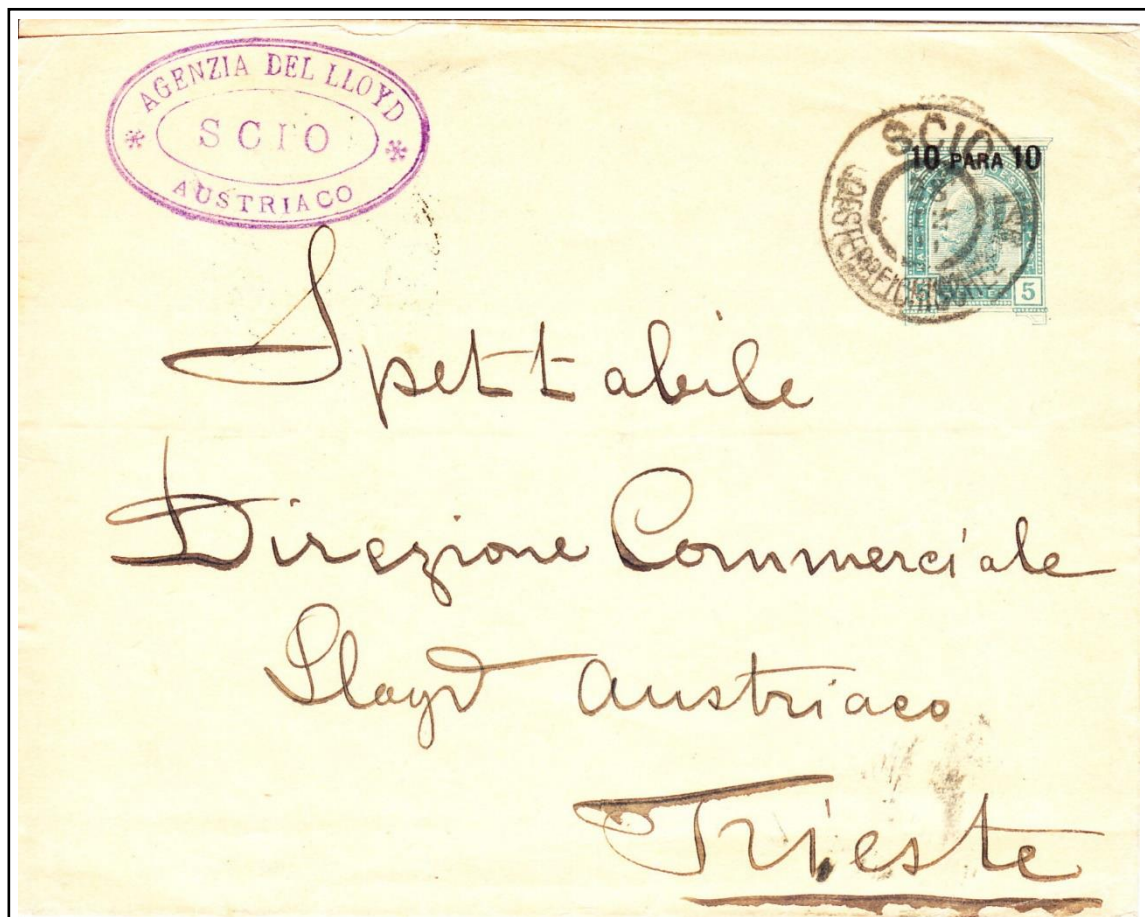 AGENZIA DEL LLOYD
SCIO
AUSTRIACO
SCIO
10 PARA 10
OESTERREICHISCHE
5
Spettabile
Direzione Commerciale
Lloyd Austriaco
Trieste